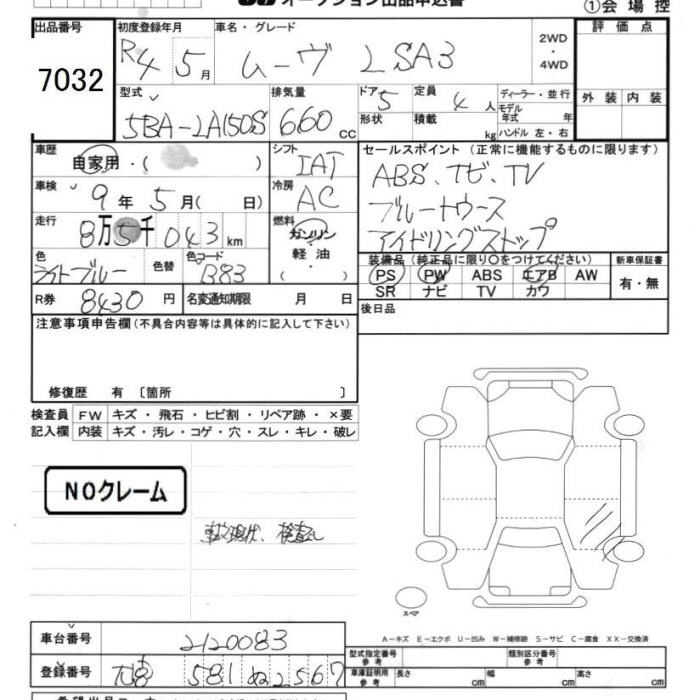 オークション出品申込書 ①会場控
出品番号 初度登録年月 車名・グレード 評価点
7032 R4 5月 ムーヴ LSA3 2WD・4WD
型式 排気量 ドア 5 定員 4人 ディーラー・並行 外装 内装
5BA-LA150S 660cc 形状 積載 kg モデル年式 年 ハンドル 左・右
車歴 自家用・( ) シフト IAT セールスポイント (正常に機能するものに限ります)
車検 9年5月( 日) 冷房 AC ABS、ナビ、TV
走行 8万5千043km 燃料 ガソリン・軽油・( ) ブルートゥース
アイドリングストップ
色 ライトブルー 色替 色コード B83 装備品(純正品に限り○をつけてください) 新車保証書
PS PW ABS エアB AW 有・無
R券 8430円 名変通知期限 月 日 SR ナビ TV カワ
注意事項申告欄(不具合内容等は具体的に記入して下さい) 後日品
修復歴 有 〔箇所 〕
検査員 FW キズ・飛石・ヒビ割・リペア跡・×要
記入欄 内装 キズ・汚レ・コゲ・穴・スレ・キレ・破レ
NOクレーム
事故現状、検査なし
スペア
A-キズ E-エクボ U-凹み W-補修跡 S-サビ C-腐食 XX-交換済
車台番号 2120083
型式指定番号 参考 類別区分番号 参考
登録番号 581 ぬ 2567
車庫証明用 参考 長さ cm 幅 cm 高さ cm